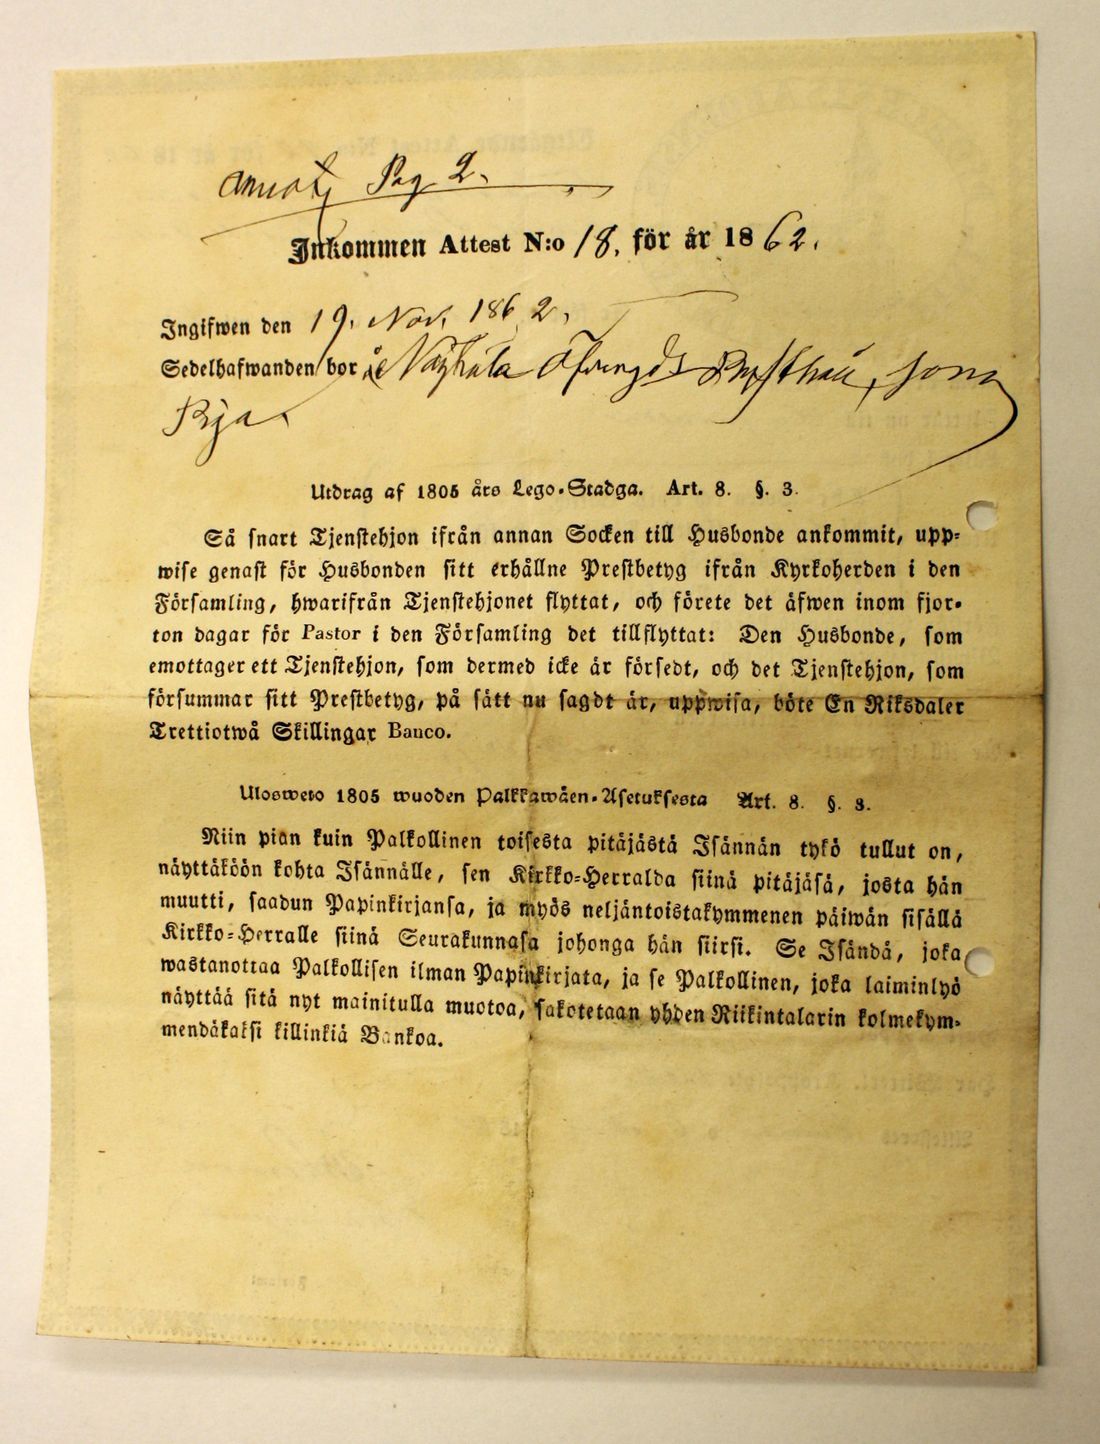 annot. Pag 2.
Inkommen Attest N:o 18. för år 1862.
Ingifwen den 19. Nov. 1862.
Sedelhafwanden bor å som
Utdrag af 1805 års Lego-Stadga. Art. 8. §. 3.
Så snart Tjenstehjon ifrån annan Socken till Husbonde ankommit, upp-
wise genast för Husbonden sitt erhållne Prestbetyg ifrån Kyrkoherden i den
Församling, hwarifrån Tjenstehjonet flyttat, och förete det äfwen inom fjor-
ton dagar för Pastor i den Församling det tillflyttat: Den Husbonde, som
emottager ett Tjenstehjon, som dermed icke är försedt, och det Tjenstehjon, som
försummar sitt Prestbetyg, på sätt nu sagdt är, uppwisa, böte En Riksdaler
Trettiotwå Skillingar Banco.
Ulosweto 1805 wuoden Palkkawäen-Asetuksesta Art. 8. §. 3.
Niin pian kuin Palkollinen toisesta pitäjästä Isännän tykö tullut on,
näyttäköön kohta Isännälle, sen Kirkko-Herralda siinä pitäjäsä, josta hän
muutti, saadun Papinkirjansa, ja myös neljäntoistakymmenen päiwän sisällä
Kirkko-Herralle siinä Seurakunnasa johonga hän siirsi. Se Isändä, joka
wastanottaa Palkollisen ilman Papinkirjata, ja se Palkollinen, joka laiminlyö
näyttää sitä nyt mainitulla muotoa, sakotetaan yhden Riikintalarin kolmekym-
mendäkaksi killinkiä Bankoa.